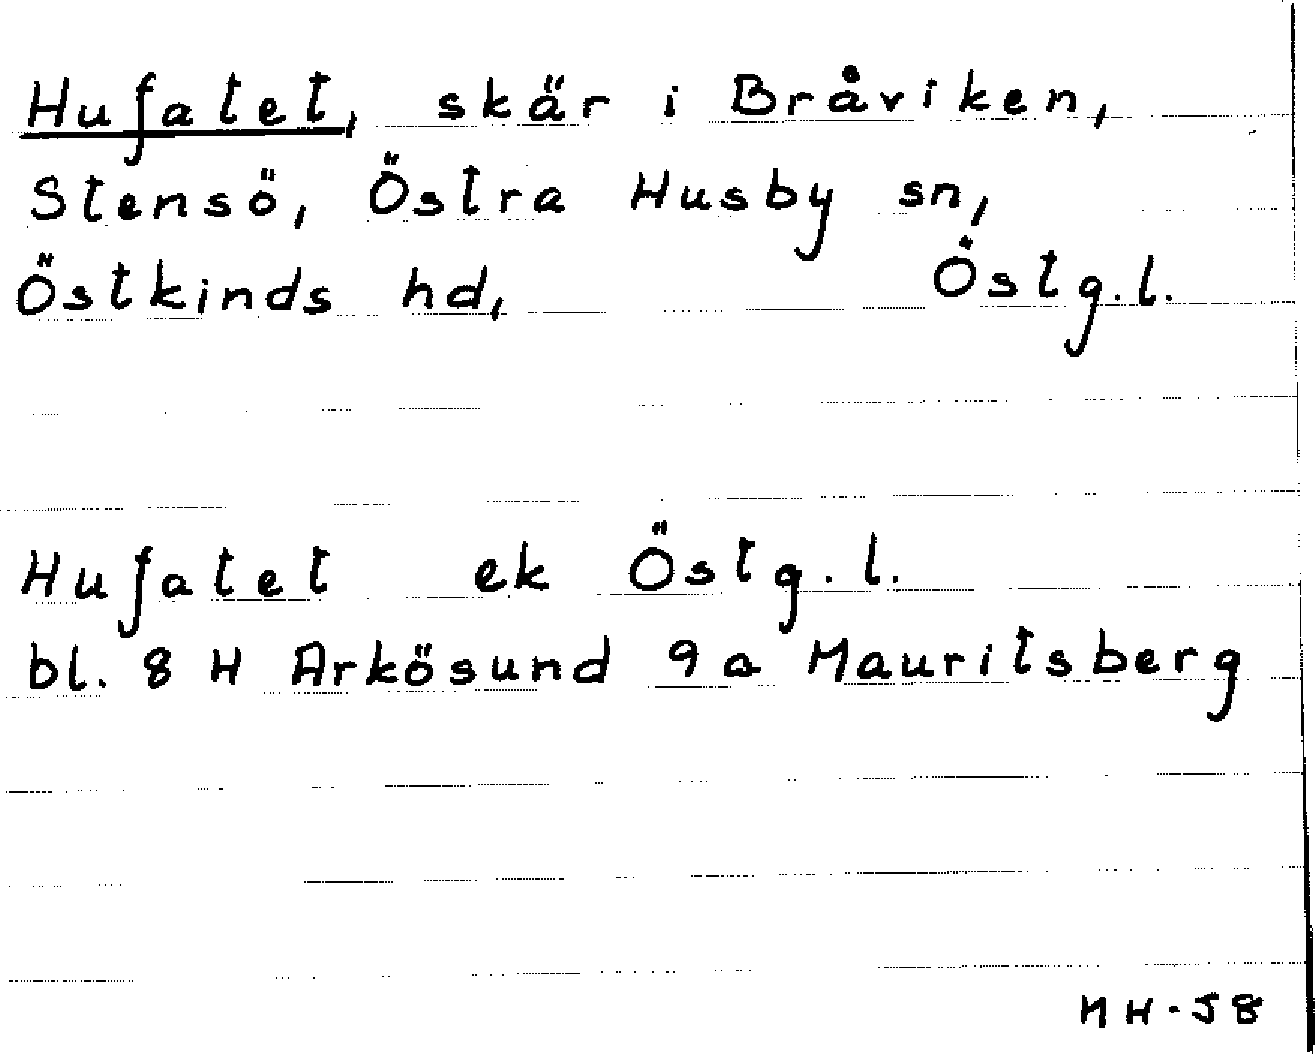 Hufatet, skär i Bråviken,
Stensö, Östra Husby sn,
Östkinds hd, Östg.l.
Hufatet ek Östg.l.
bl. 8 H Arkösund 9a Mauritsberg
MH-58